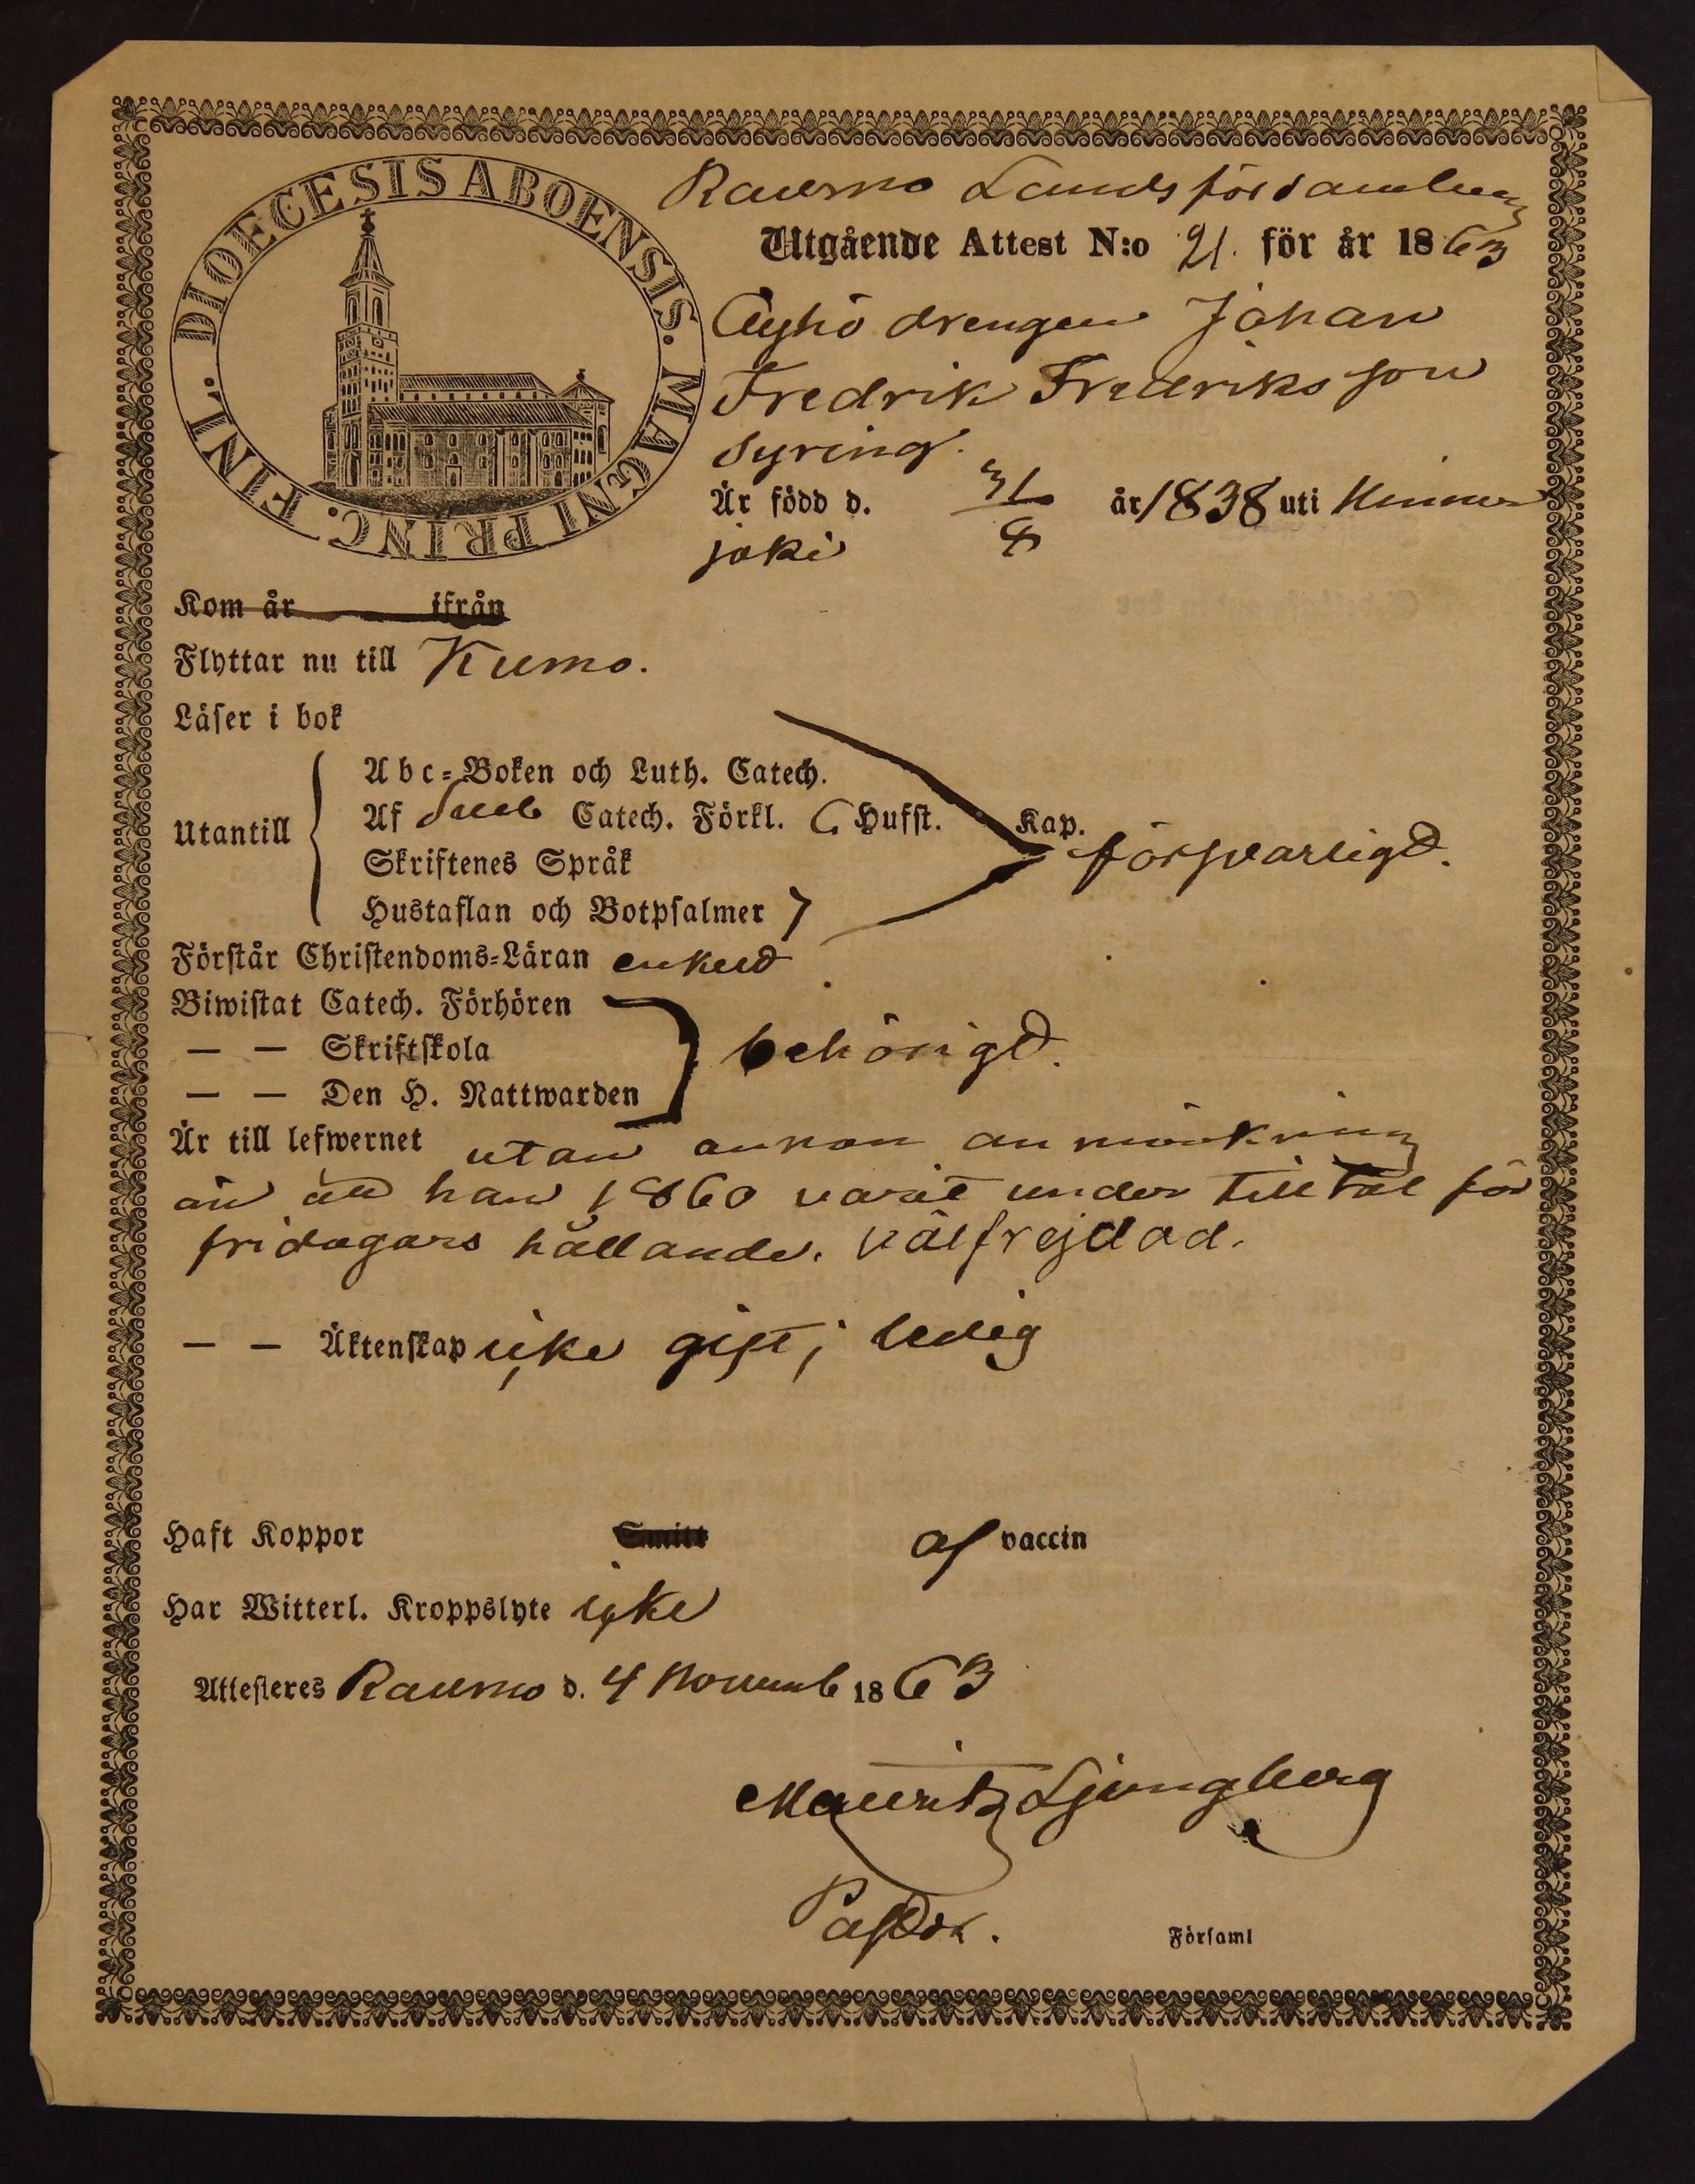 DIOECESIS ABOENSIS. MAGNI PRINC. FINL.
Raumo Landsförsamling
Utgående Attest N:o 21. för år 1863
drengen Johan
Fredrik Fredriksson
Syring.
Är född d. 31/8 år 1838 uti Kinner
joki
Kom år ifrån
Flyttar nu till Kumo.
Läser i bok
Utantill
Abc-Boken och Luth. Catech.
Af Sveb Catech. Förkl. 6 Hufst. Kap. försvarligt.
Skriftenes Språk
Hustaflan och Botpsalmer 7
Förstår Christendoms-Läran enkelt
Biwistat Catech. Förhören
— — Skriftskola behörigt.
— — Den H. Nattwarden
Är till lefwernet utan annan anmärkning
än att han 1860 varit under tilltal för
fridagars hållande. välfrejdad.
— — Äktenskap icke gift; ledig
Haft Koppor Smitt af vaccin
Har Witterl. Kroppslyte icke
Attesteres Raumo d. 4 Novemb 1863
Mauritz Ljungberg
Pastor. Församl